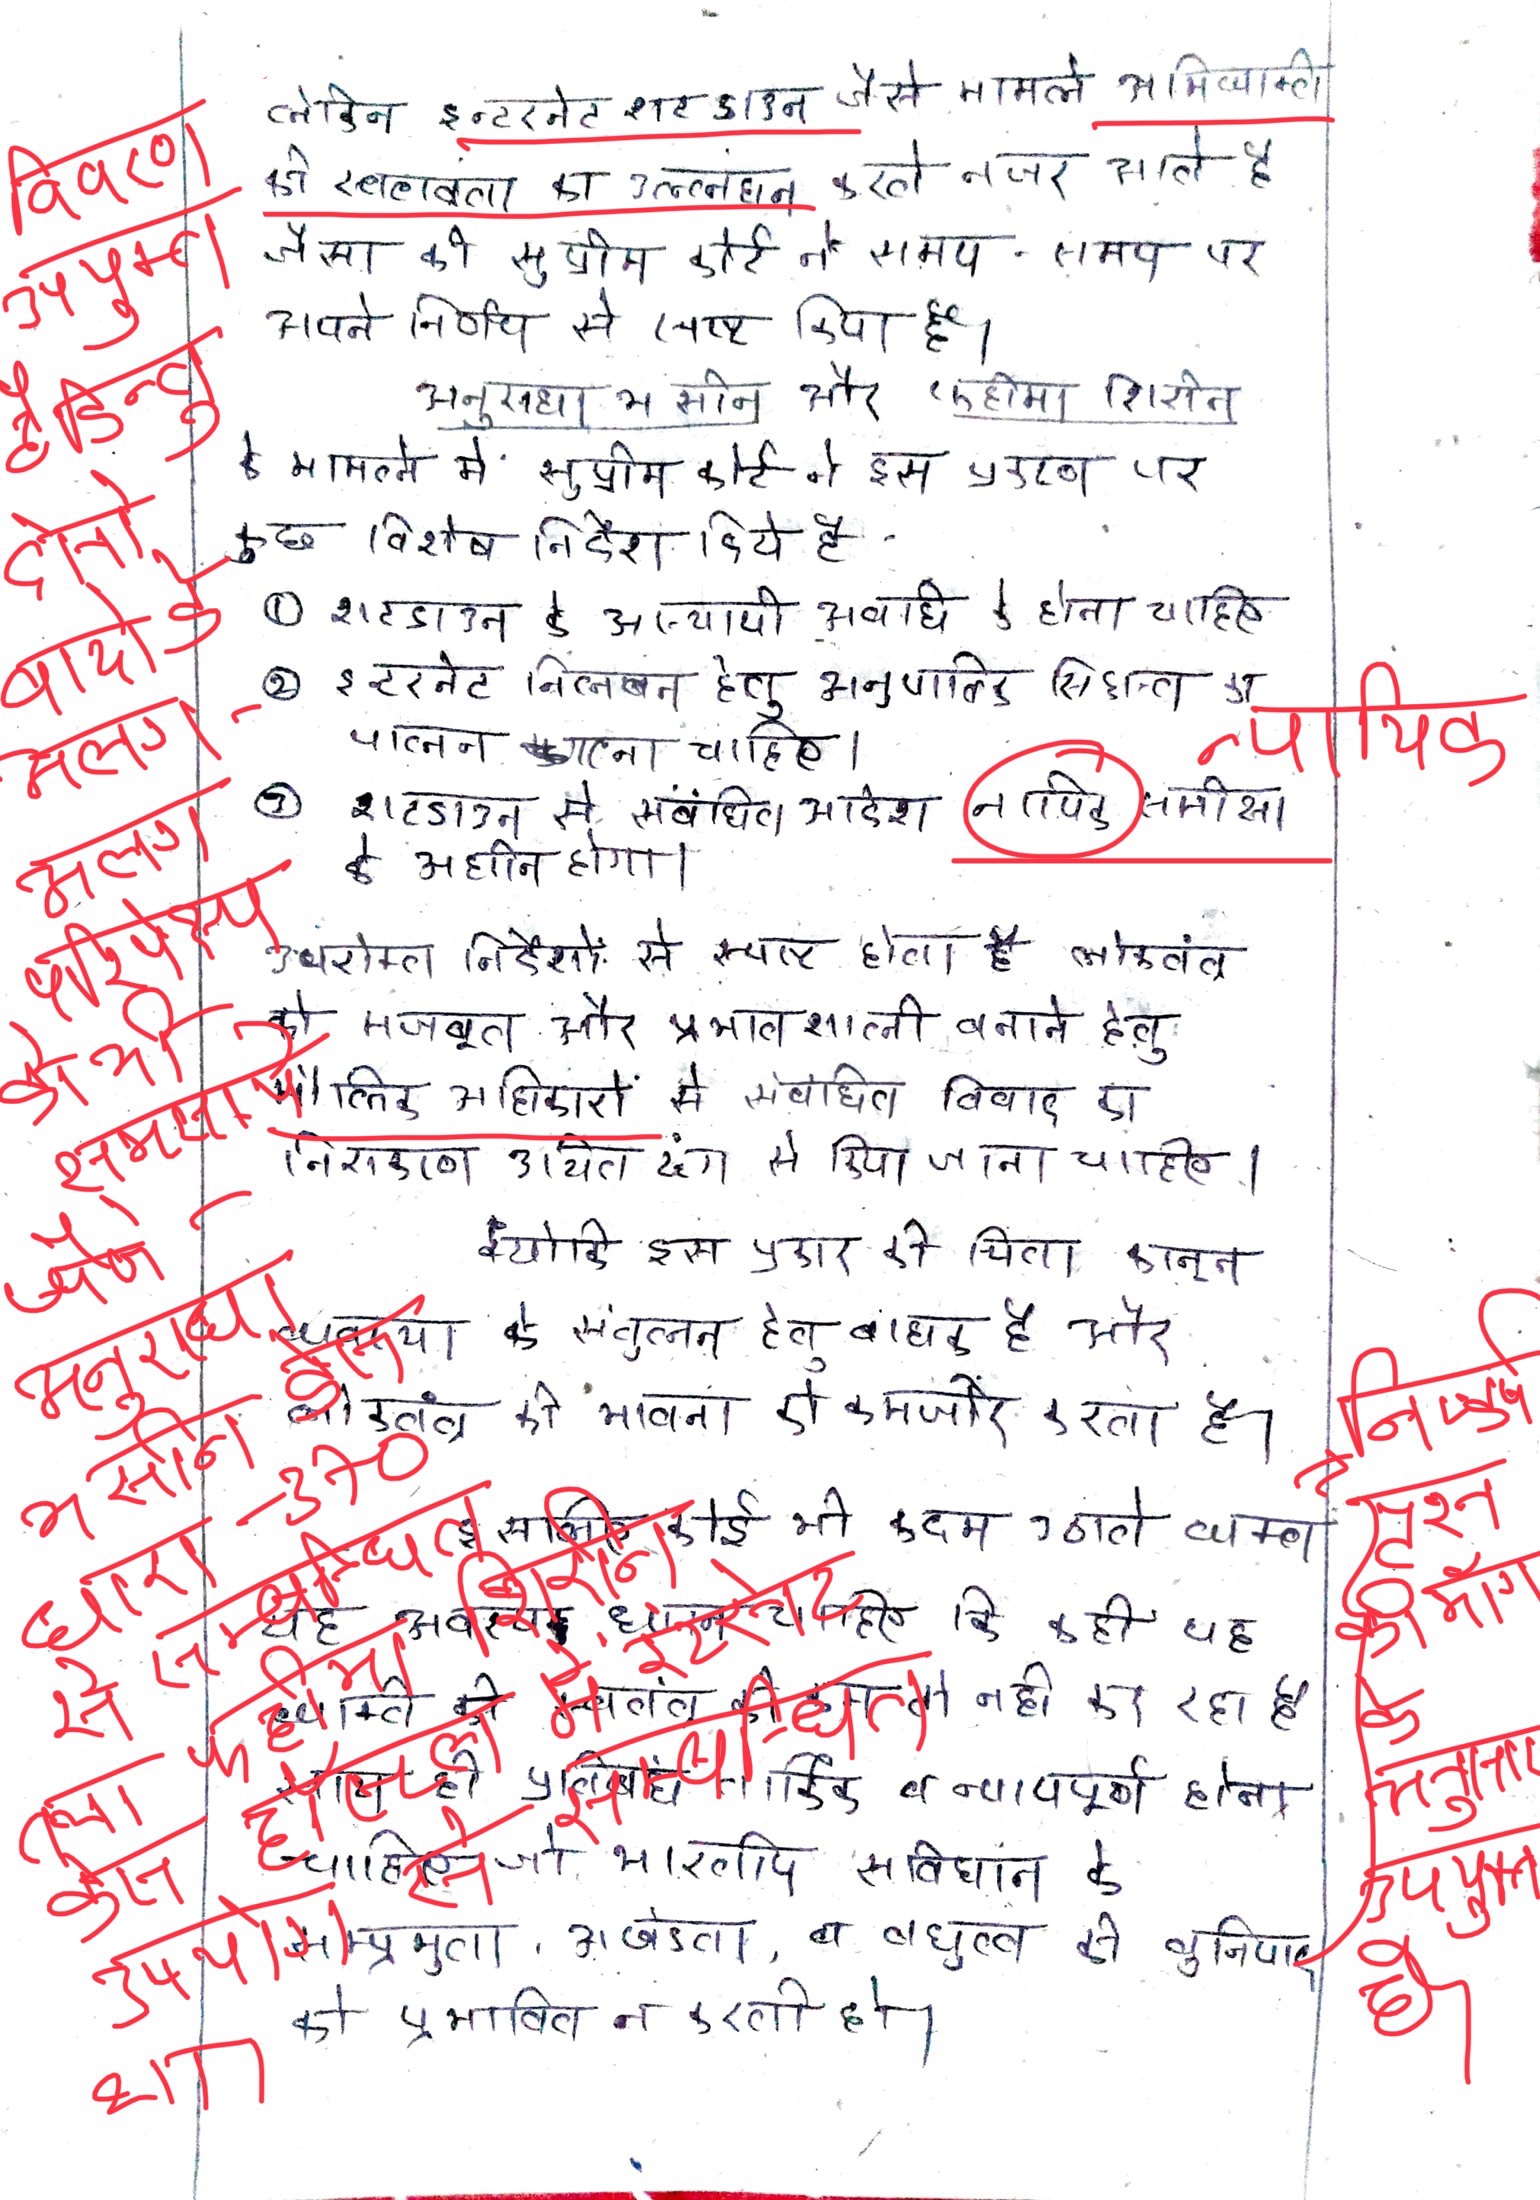 लेकिन इन्टरनेट शट डाउन जैसे मामले अभिव्यक्ति
की स्वतंत्रता का उल्लंघन करते नजर आते है
जैसा की सुप्रीम कोर्ट ने समय - समय पर
अपने निर्णय से स्पष्ट किया है।
अनुराधा भसीन और फहीमा शिरीन
के मामले में सुप्रीम कोर्ट ने इस प्रकरण पर
कुछ विशेष निर्देश दिये है -
① शटडाउन के अस्थायी अवधि के होना चाहिए
② इन्टरनेट निलम्बन हेतु अनुपातिक सिद्धान्त का
पालन करना चाहिए।
न्यायिक
③ शटडाउन से संबंधित आदेश नायिक समीक्षा
के अधीन होगा।
उपरोक्त निर्देशों से स्पष्ट होता है लोकतंत्र
को मजबूत और प्रभावशाली बनाने हेतु
मौलिक अधिकारों से संबंधित विवाद का
निराकरण उचित ढंग से किया जाना चाहिए।
क्योंकि इस प्रकार की चिंता कानून
व्यवस्था के संतुलन हेतु बाधक है और
लोकतंत्र की भावना को कमजोर करता है।
इसलिए कोई भी कदम उठाते वक्त
यह अवश्यक ध्यान चाहिए कि कही यह
व्यक्ति की स्वतंत्र को कम तो नही कर रहा है
साथ ही प्रतिबंध तार्किक व न्यायपूर्ण होना
चाहिए जो भारतीय संविधान के
सम्प्रभुता, अखंडता, व बंधुत्व की बुनियाद
को प्रभावित न करती हो।
विवरण
उपयुक्त
है किन्तु
दोनो
वायो के
अलग -
अलग
परिप्रेक्ष्य
को भी
समझाये
जैसे -
अनुराधा
भसीन केस
धारा - 370
से सम्बन्धित
तथा फहीमा शिरीन
केस हॉस्टल में इंटरनेट
उपयोग से सम्बन्धित
था।
निष्कर्ष
प्रश्न
की माँग
के
अनुसार
उपयुक्त
है।